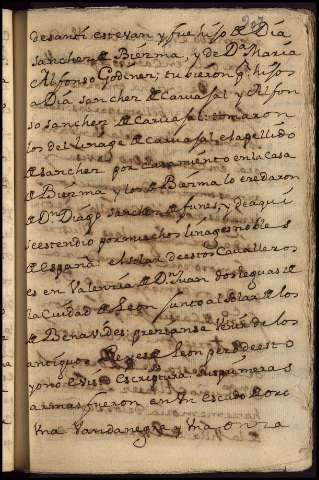 de santi estevan y fue hijo de Dia
sanchez de Biezma, y de Da. Maria
Alfonso Godinez; tubieron hijos
a Dia sanchez de Caruajal y Alfon
so sanchez de Caruajal: tomaron
los del linage de Caruajal el apellido
de sanchez por casamiento en la Casa
de Biezma y los de Biezma lo eredaron
de Dn. Diago sanchez de funes, y de aqui
se estendio por muchos linages nobles
de españa: el solar de estos Caualleros
es en Valencia de Dn. Juan dos leguas de
la Ciudad de Leon junto al solar de los
de Benavides: prezianse venir de los
antiguos Reyes de Leon pero de esto
yo no e visto Escriptura. sus primeras
armas fueron en Vn Escudo de oro
Vna Vanda negra y Vna onza